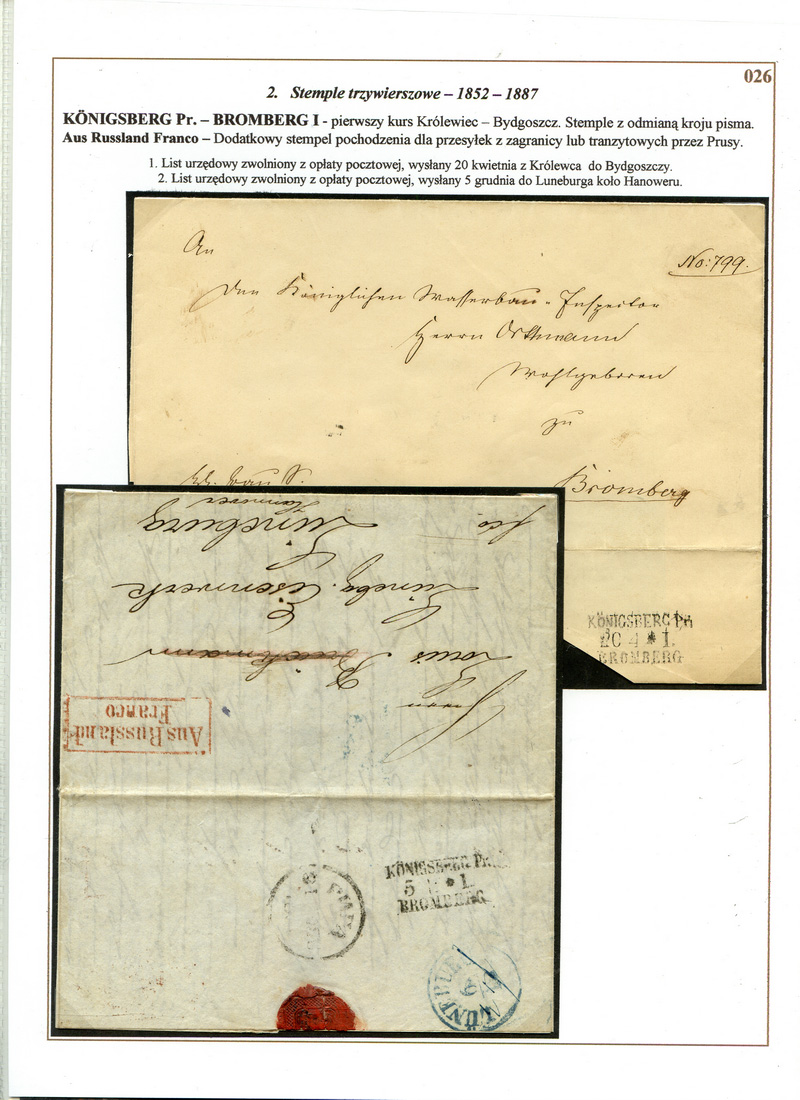 026
2. Stemple trzywierszowe – 1852 – 1887
KÖNIGSBERG Pr. – BROMBERG I - pierwszy kurs Królewiec – Bydgoszcz. Stemple z odmianą kroju pisma.
Aus Russland Franco – Dodatkowy stempel pochodzenia dla przesyłek z zagranicy lub tranzytowych przez Prusy.
1. List urzędowy zwolniony z opłaty pocztowej, wysłany 20 kwietnia z Królewca do Bydgoszczy.
2. List urzędowy zwolniony z opłaty pocztowej, wysłany 5 grudnia do Luneburga koło Hanoweru.
An
No: 799.
Den Königlichen Wasserbau-Inspector
Herrn Ostmann
Wohlgeboren
zu
Bromberg
KÖNIGSBERG Pr.
20 4 * I.
BROMBERG
Herrn
Louis
Lünebg. Eisenwerk
Lüneburg
Hannover
Aus Russland
Franco
KÖNIGSBERG Pr.
5 * I.
BROMBERG
LÜNEBURG